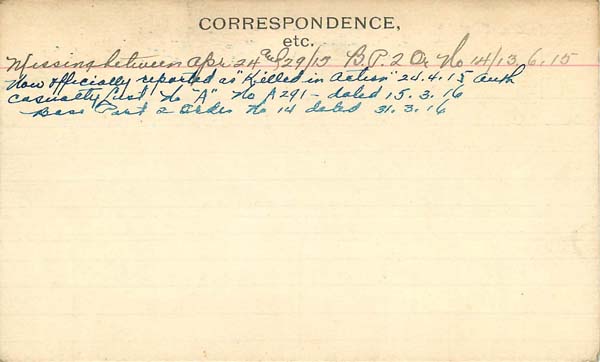 CORRESPONDENCE,
etc.
Missing between Apr. 24 and 29/15 B.P. 2 Or No 14/13.6.15
Now officially reported as "Killed in Action" 24.4.15 Auth
Casualty List No "A" No A291 - dated 15.3.16
Base Part 2 Order No 14 dated 31.3.16